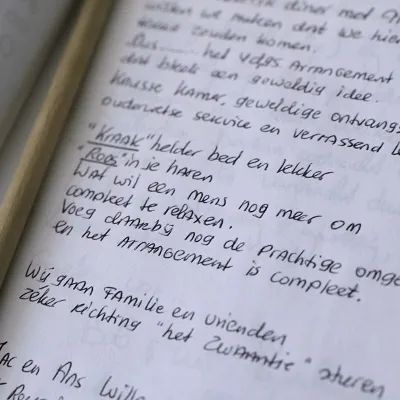 diner met
willen we maken dat we hier
zouden komen.
Dus...... het VGAS ARRANGEMENT
dat bleek een geweldig idee.
Keurige kamer, geweldige ontvangs
ouderwetse service en verrassend
"KRAAK" helder bed en lekker
"ROOS" in je haren
Wat wil een mens nog meer om
compleet te relaxen.
Voeg daarbij nog de prachtige omge
en het ARRANGEMENT is compleet.
Wij gaan FAMILIE en vrienden
zéker richting "het Zwaantje" sturen
en Ans